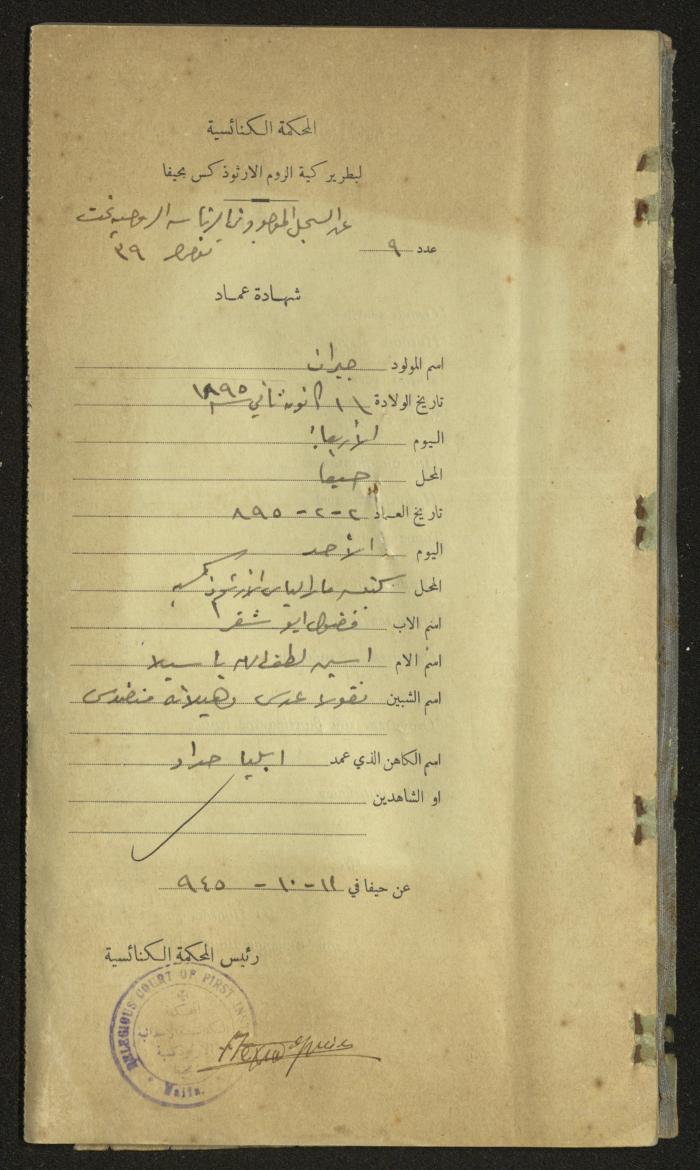 المحكمة الكنائسية
لبطريركية الروم الارثوذكس بحيفا
عن السجل الموجود في الرئاسة الروحية تحت
عدد ٩ نمرة ٣٩
شهادة عماد
اسم المولود جبران
تاريخ الولادة ١١ كانون ثاني ١٨٩٥
اليوم الأربعاء
المحل حيفا
تاريخ العماد ٢-٢-٨٩٥
اليوم الأحد
المحل كنيسة مار الياس الارثوذكسية
اسم الاب فضول ابو شقرا
اسم الام لطف الله باسيلا
اسم الشبين نقولا عدس وهيلانة
اسم الكاهن الذي عمد ايليا حداد
او الشاهدين
عن حيفا في ١١-١٠-٩٤٥
رئيس المحكمة الكنائسية
RELEGIOUS COURT OF FIRST IN
Haifa.